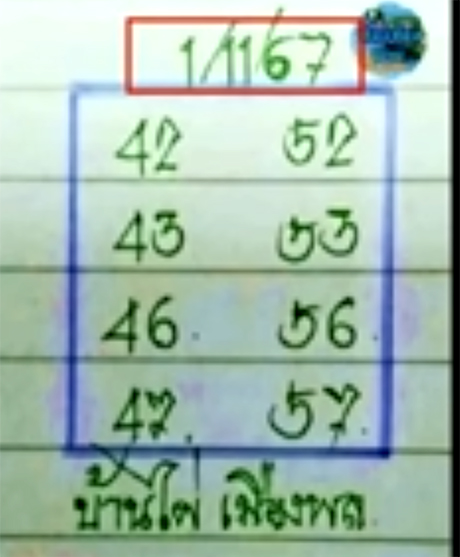 1/11/67
42 52
43 53
46 56
47 57
บ้านไผ่ เมืองพล